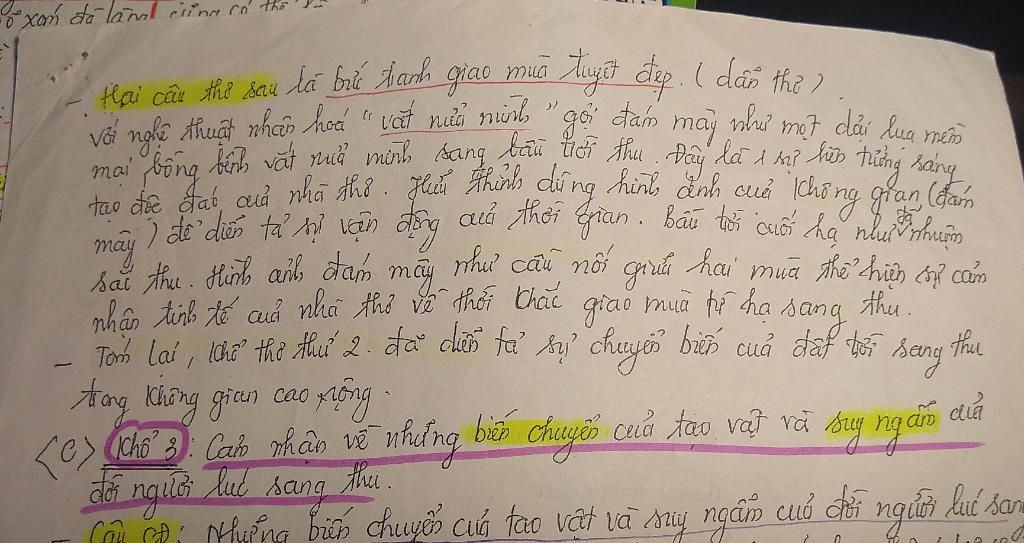 xóm đã làng cũng có thể
- Hai câu thơ sau là bức tranh giao mùa tuyệt đẹp. (dẫn thơ)
với nghệ thuật nhân hoá "vắt nửa mình" gợi đám mây như một dải lụa mềm
mại bồng bềnh vắt nửa mình sang bầu trời thu. Đây là 1 sự liên tưởng sáng
tạo độc đáo của nhà thơ. Hữu Thỉnh dùng hình ảnh của không gian (đám
mây) để diễn tả sự vận động của thời gian. Bầu trời cuối hạ như đã nhuộm
sắc thu. Hình ảnh đám mây như cầu nối giữa hai mùa thể hiện sự cảm
nhận tinh tế của nhà thơ về thời khắc giao mùa từ hạ sang thu.
- Tóm lại, khổ thơ thứ 2 đã diễn tả sự chuyển biến của đất trời sang thu
trong không gian cao rộng.
<c> Khổ 3: Cảm nhận về những biến chuyển của tạo vật và suy ngẫm của
đời người lúc sang thu.
- Câu CĐ: Những biến chuyển của tạo vật và suy ngẫm của đời người lúc sang